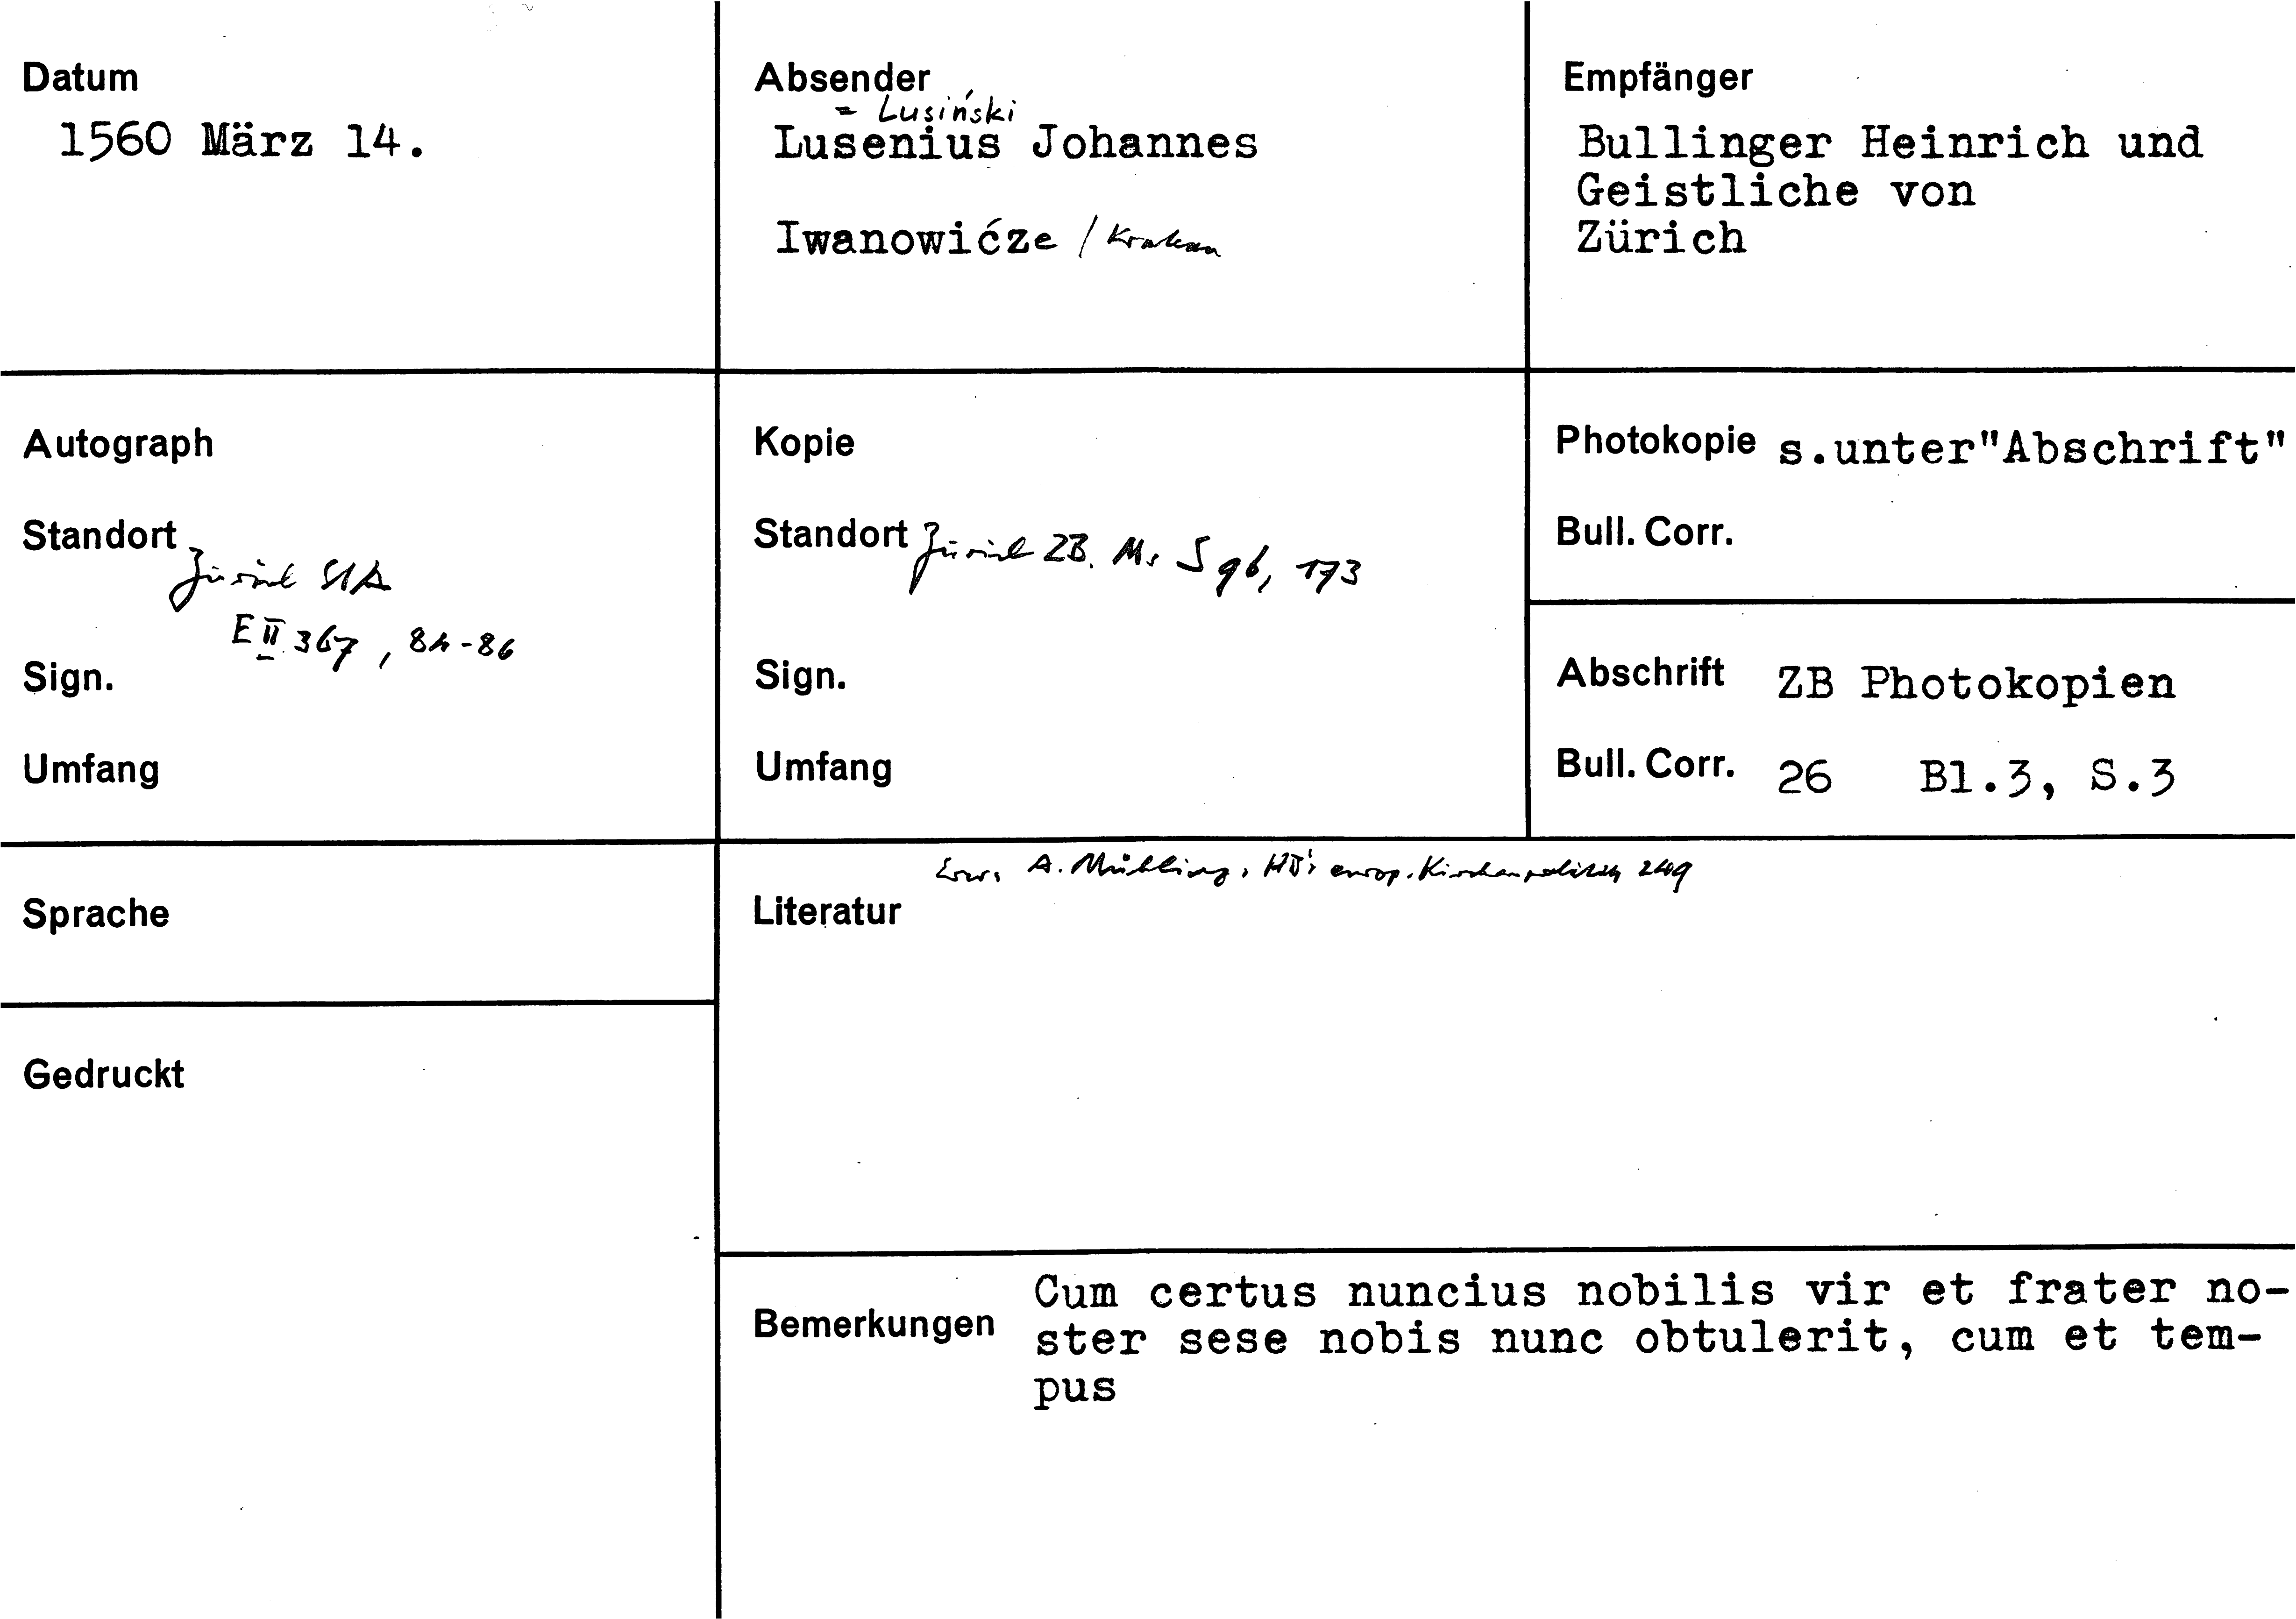 Datum
1560 März 14.
Absender
= Lusiński
Lusenius Johannes
Iwanowićze / Krakau
Empfänger
Bullinger Heinrich und
Geistliche von
Zürich
Autograph
Standort
Zürich StA
E II 367, 84-86
Sign.
Umfang
Kopie
Standort Zürich ZB. Ms S 96, 173
Sign.
Umfang
Photokopie s.unter"Abschrift"
Bull. Corr.
Abschrift ZB Photokopien
Bull. Corr. 26 Bl.3, S.3
Sprache
Gedruckt
Erw. A. Mühling, HB's europ. Kirchenpolitik 249
Literatur
Bemerkungen
Cum certus nuncius nobilis vir et frater no-
ster sese nobis nunc obtulerit, cum et tem-
pus